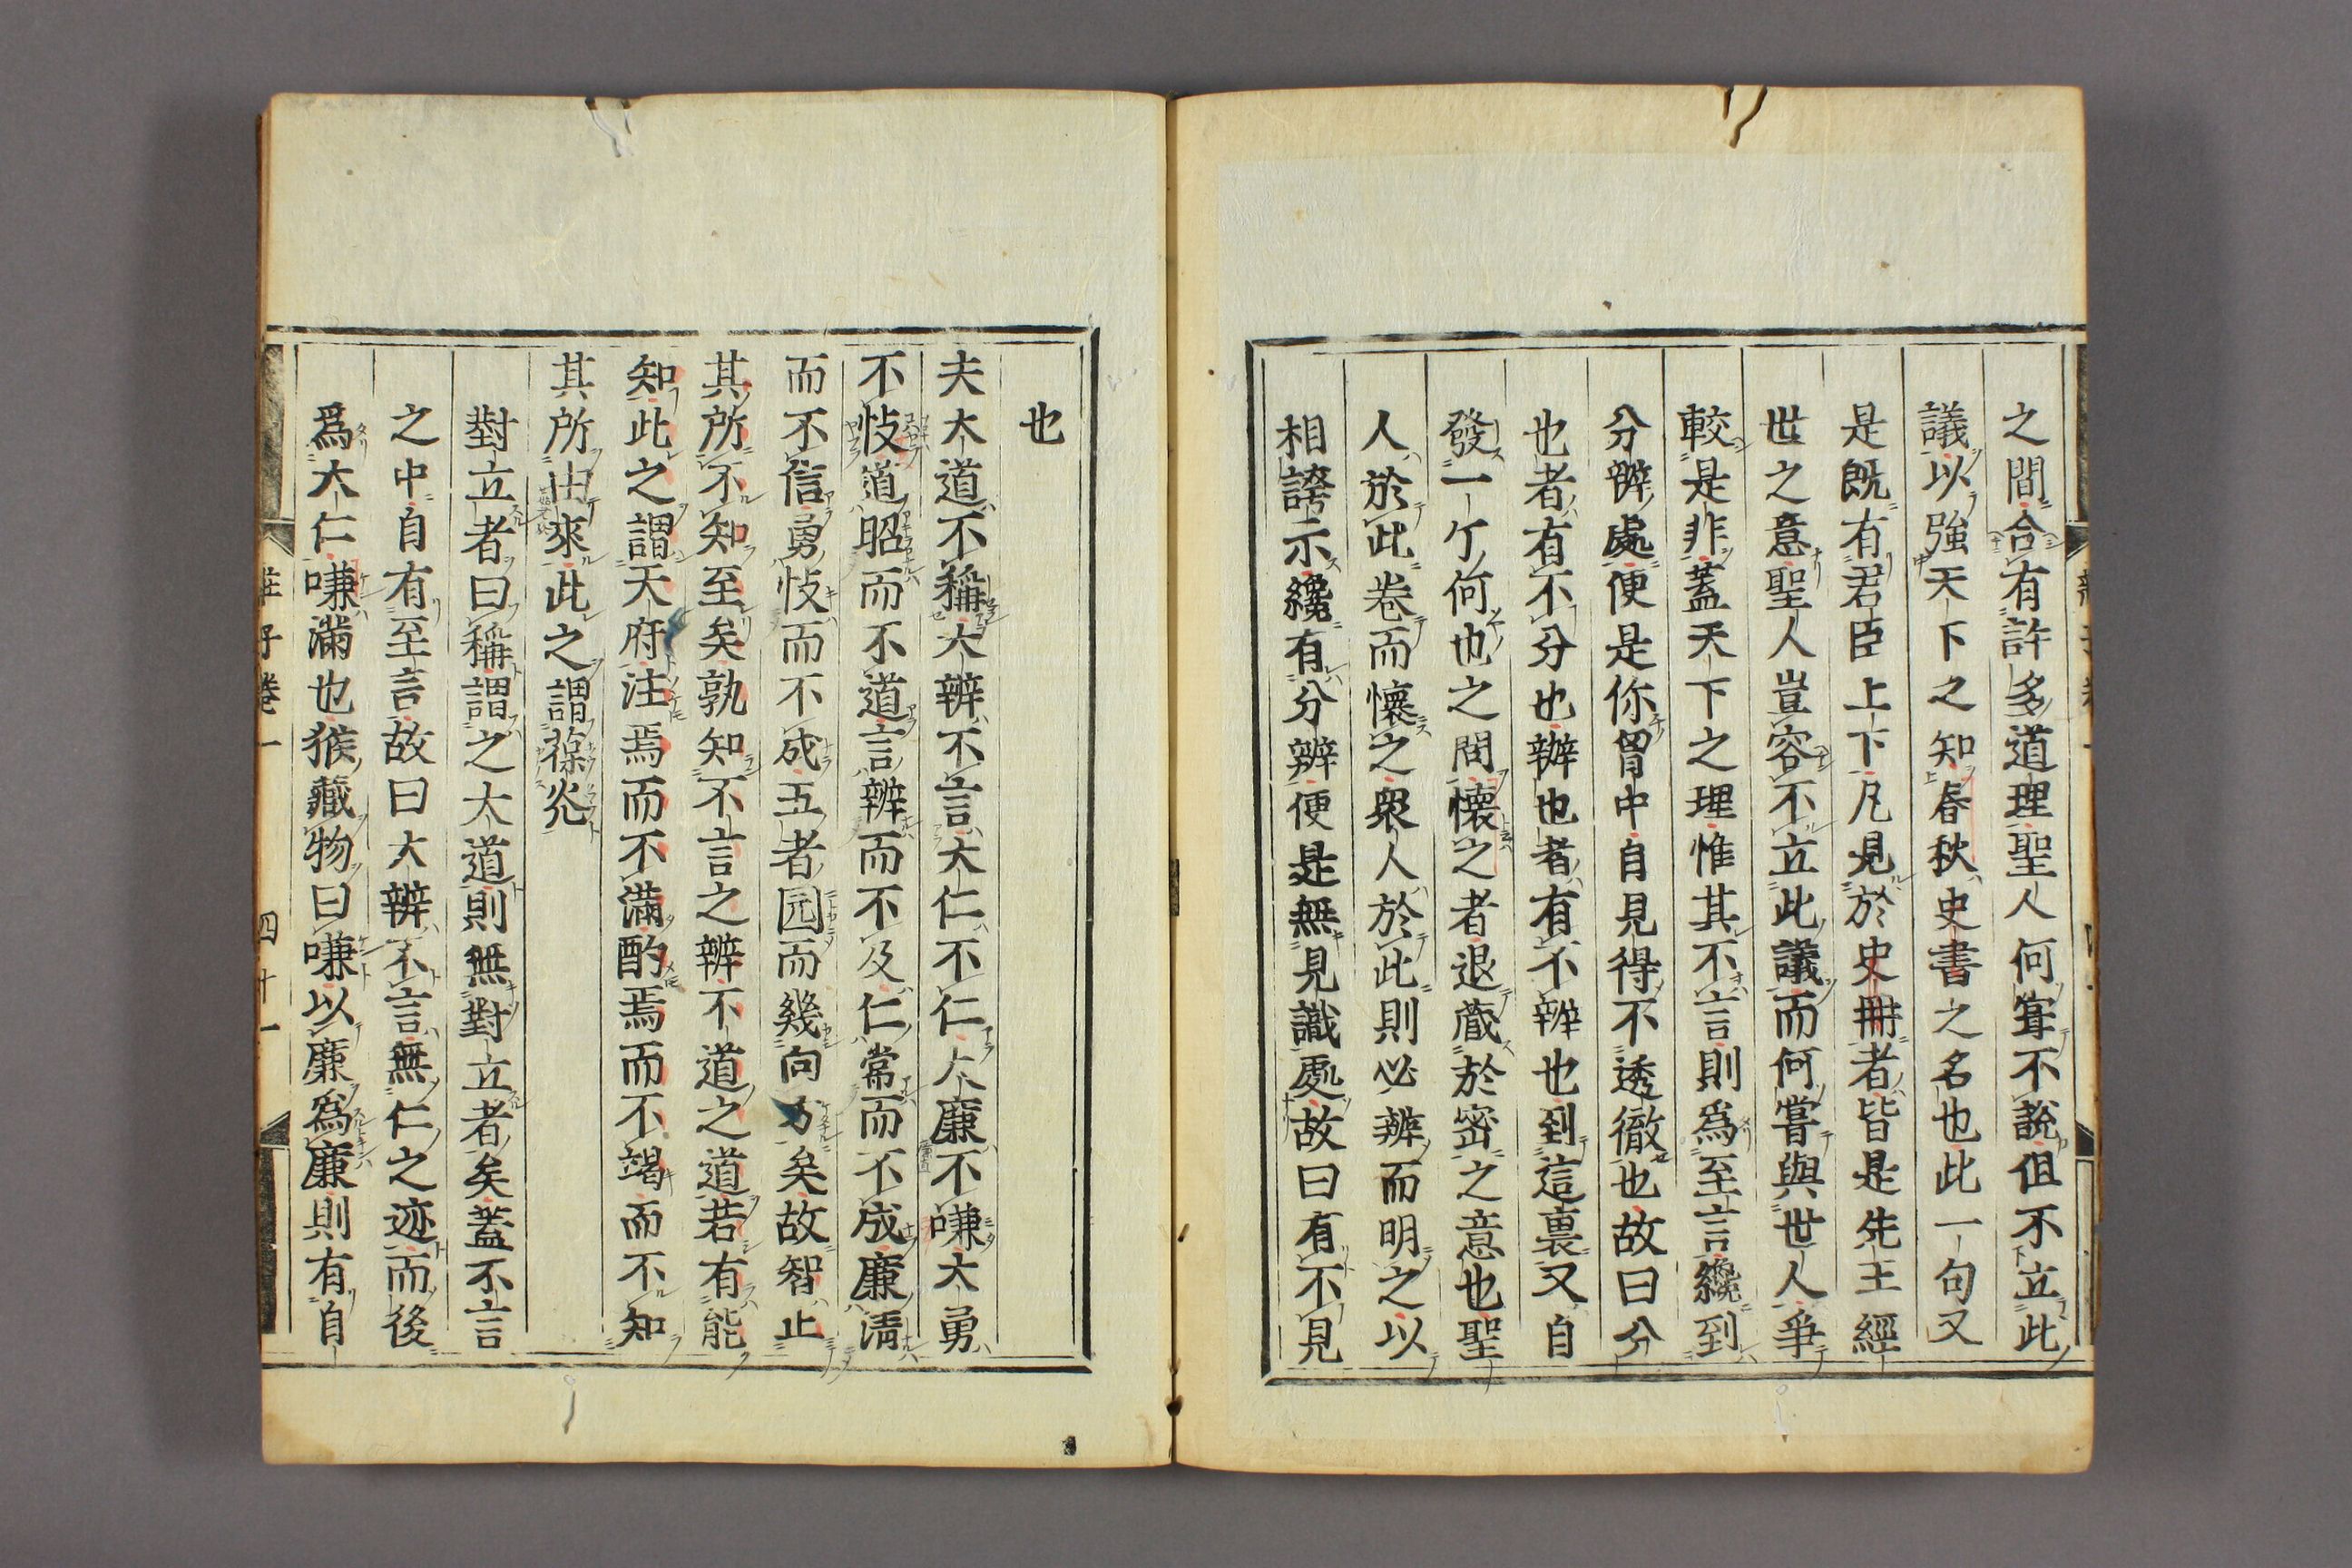 之間合有許多道理聖人何甞不說但不立此
議以強天下之知春秋史書之名也此一句又
是既有君臣上下凡見於史冊者皆是先王經
世之意聖人豈容不立此議而何嘗與世人爭
較是非蓋天下之理惟其不言則為至言纔到
分辨處便是你胷中自見得不透徹也故曰分
也者有不分也辨也者有不辨也到這裏又自
發一个何也之問懷之者退藏於密之意也聖
人於此卷而懷之衆人於此則必辨而明之以
相誇示纔有分辨便是無見識處故曰有不見
也
夫大道不稱大辨不言大仁不仁大廉不嗛大勇
不忮道昭而不道言辨而不及仁常而不成廉清
而不信勇忮而不成五者园而幾向方矣故智止
其所不知至矣孰知不言之辨不道之道若有能
知此之謂天府注焉而不滿酌焉而不竭而不知
其所由來此之謂葆光
對立者曰稱謂之大道則無對立者矣蓋不言
之中自有至言故曰大辨不言無仁之迹而後
爲大仁嗛滿也猴藏物曰嗛以廉爲廉則有自
莊子卷一
四十一